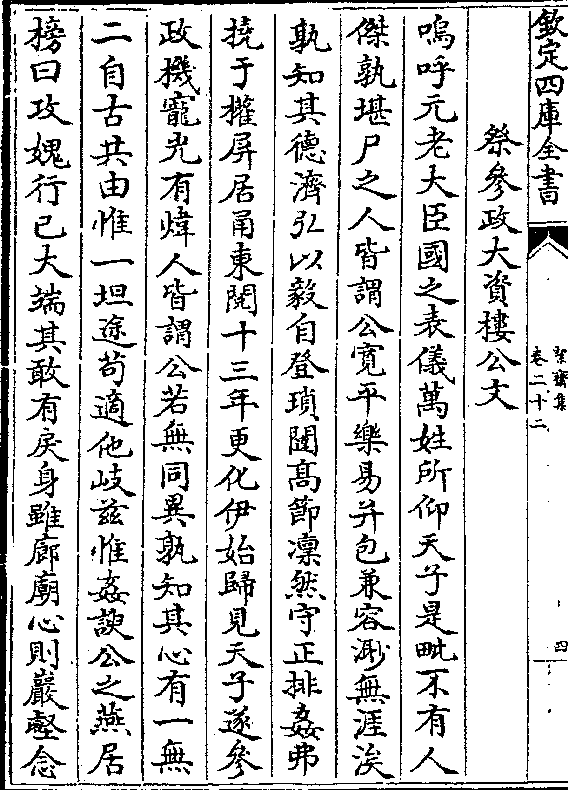 欽定四庫全書
絜齋集
卷二十二
四
祭參政大資樓公文
嗚呼元老大臣國之表儀萬姓所仰天子是毗不有人
傑孰堪尸之人皆謂公寛平樂易并包兼容渺無涯涘
孰知其德濟弘以毅自登瑣闥髙節凜然守正排姦弗
撓于權屏居甬東閱十三年更化伊始歸見天子遂參
政機寵光有煒人皆謂公若無同異孰知其心有一無
二自古共由惟一坦途茍適他岐兹惟姦諛公之燕居
榜曰攻媿行已大端其敢有戾身雖廊廟心則巖壑念